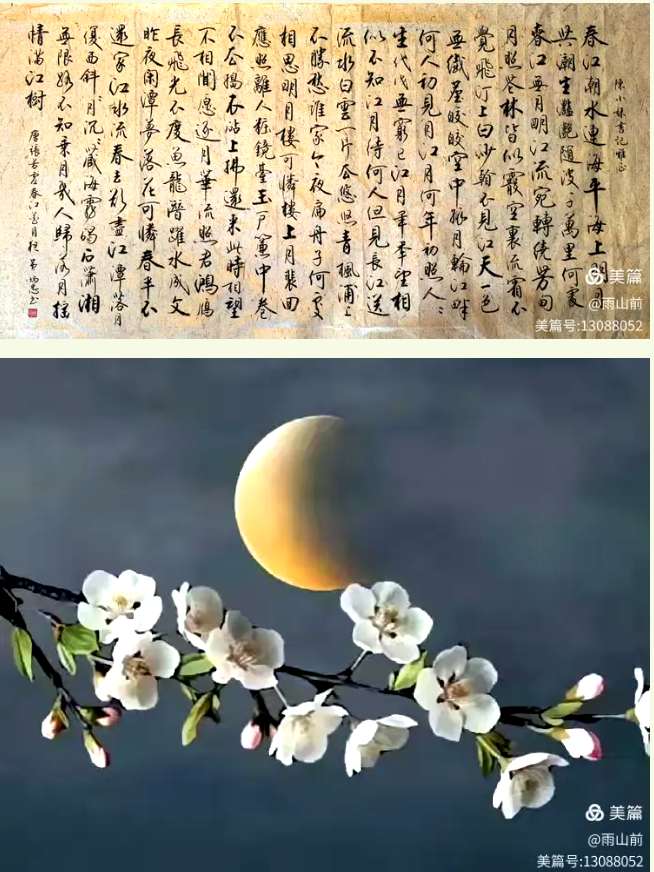 春江潮水連海平海上明月
共潮生灩灩隨波千萬里何處
春江無月明江流宛轉繞芳甸
月照花林皆似霰空裏流霜不
覺飛汀上白沙看不見江天一色
無纖塵皎皎空中孤月輪江畔
何人初見月江月何年初照人々
生代代無窮已江月年年望相
似不知江月待何人但見長江送
流水白雲一片去悠悠青楓浦上
不勝愁誰家今夜扁舟子何處
相思明月樓可憐樓上月裴回
應照離人妝鏡臺玉戶簾中卷
不去搗衣砧上拂還來此時相望
不相聞願逐月華流照君鴻雁
長飛光不度魚龍潛躍水成文
昨夜閑潭夢落花可憐春半不
還家江水流春去欲盡江潭落月
復西斜斜月沉沉藏海霧碣石瀟湘
無限路不知乘月幾人歸落月搖
情滿江樹
唐張若虛春江花月夜
美篇
@雨山前
美篇号:13088052
美篇
@雨山前
美篇号:13088052